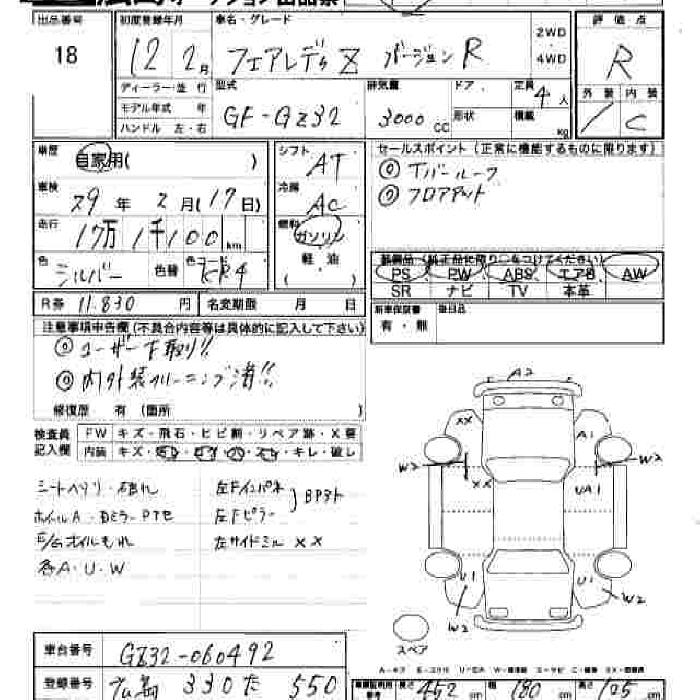 オークション出品票
出品番号 初度登録年月 車名・グレード 2WD 4WD 評価点
18 12 2月 フェアレディZ バージョンR R
ディーラー・並行 型式 排気量 ドア 定員 4人 外装 内装
モデル年式 年 GF-GZ32 3000cc 形状 積載 kg / C
ハンドル 左・右
車歴 自家用( ) シフト AT セールスポイント(正常に機能するものに限ります)
車検 29年 2月(17日) 冷房 AC ◎Tバールーフ
◎フロアマット
走行 17万1千100km 燃料 ガソリン 軽油
色 シルバー 色替 カラーNo. KR4 ( )
装備品(純正品に限り○をつけてください)
PS PW ABS エアB AW
SR ナビ TV 本革
R券 11.830円 名変期限 月 日
新車保証書 有・無 後日品
注意事項申告欄(不具合内容等は具体的に記入して下さい)
◎ユーザー下取り!!
◎内外装クリーニング済!!
修復歴 有(箇所 )
検査員記入欄 FW キズ・飛石・ヒビ割・リペア跡・X要
内装 キズ・汚れ・コゲ・穴・スレ・キレ・破レ
シートヘタリ・破れ 左Fインパネ BPヌト
ホイルA・ 左Fピラー
E/Gオイルもれ 左サイドミル XX
各A・U・W
A2
XX A1
W2 XX W2
UA1
U1 U1
W2 W2
スペア
車台番号 GZ32-060492
登録番号 330た 550
車両証明書参考 長さ 452cm 幅 180cm 高さ 125cm